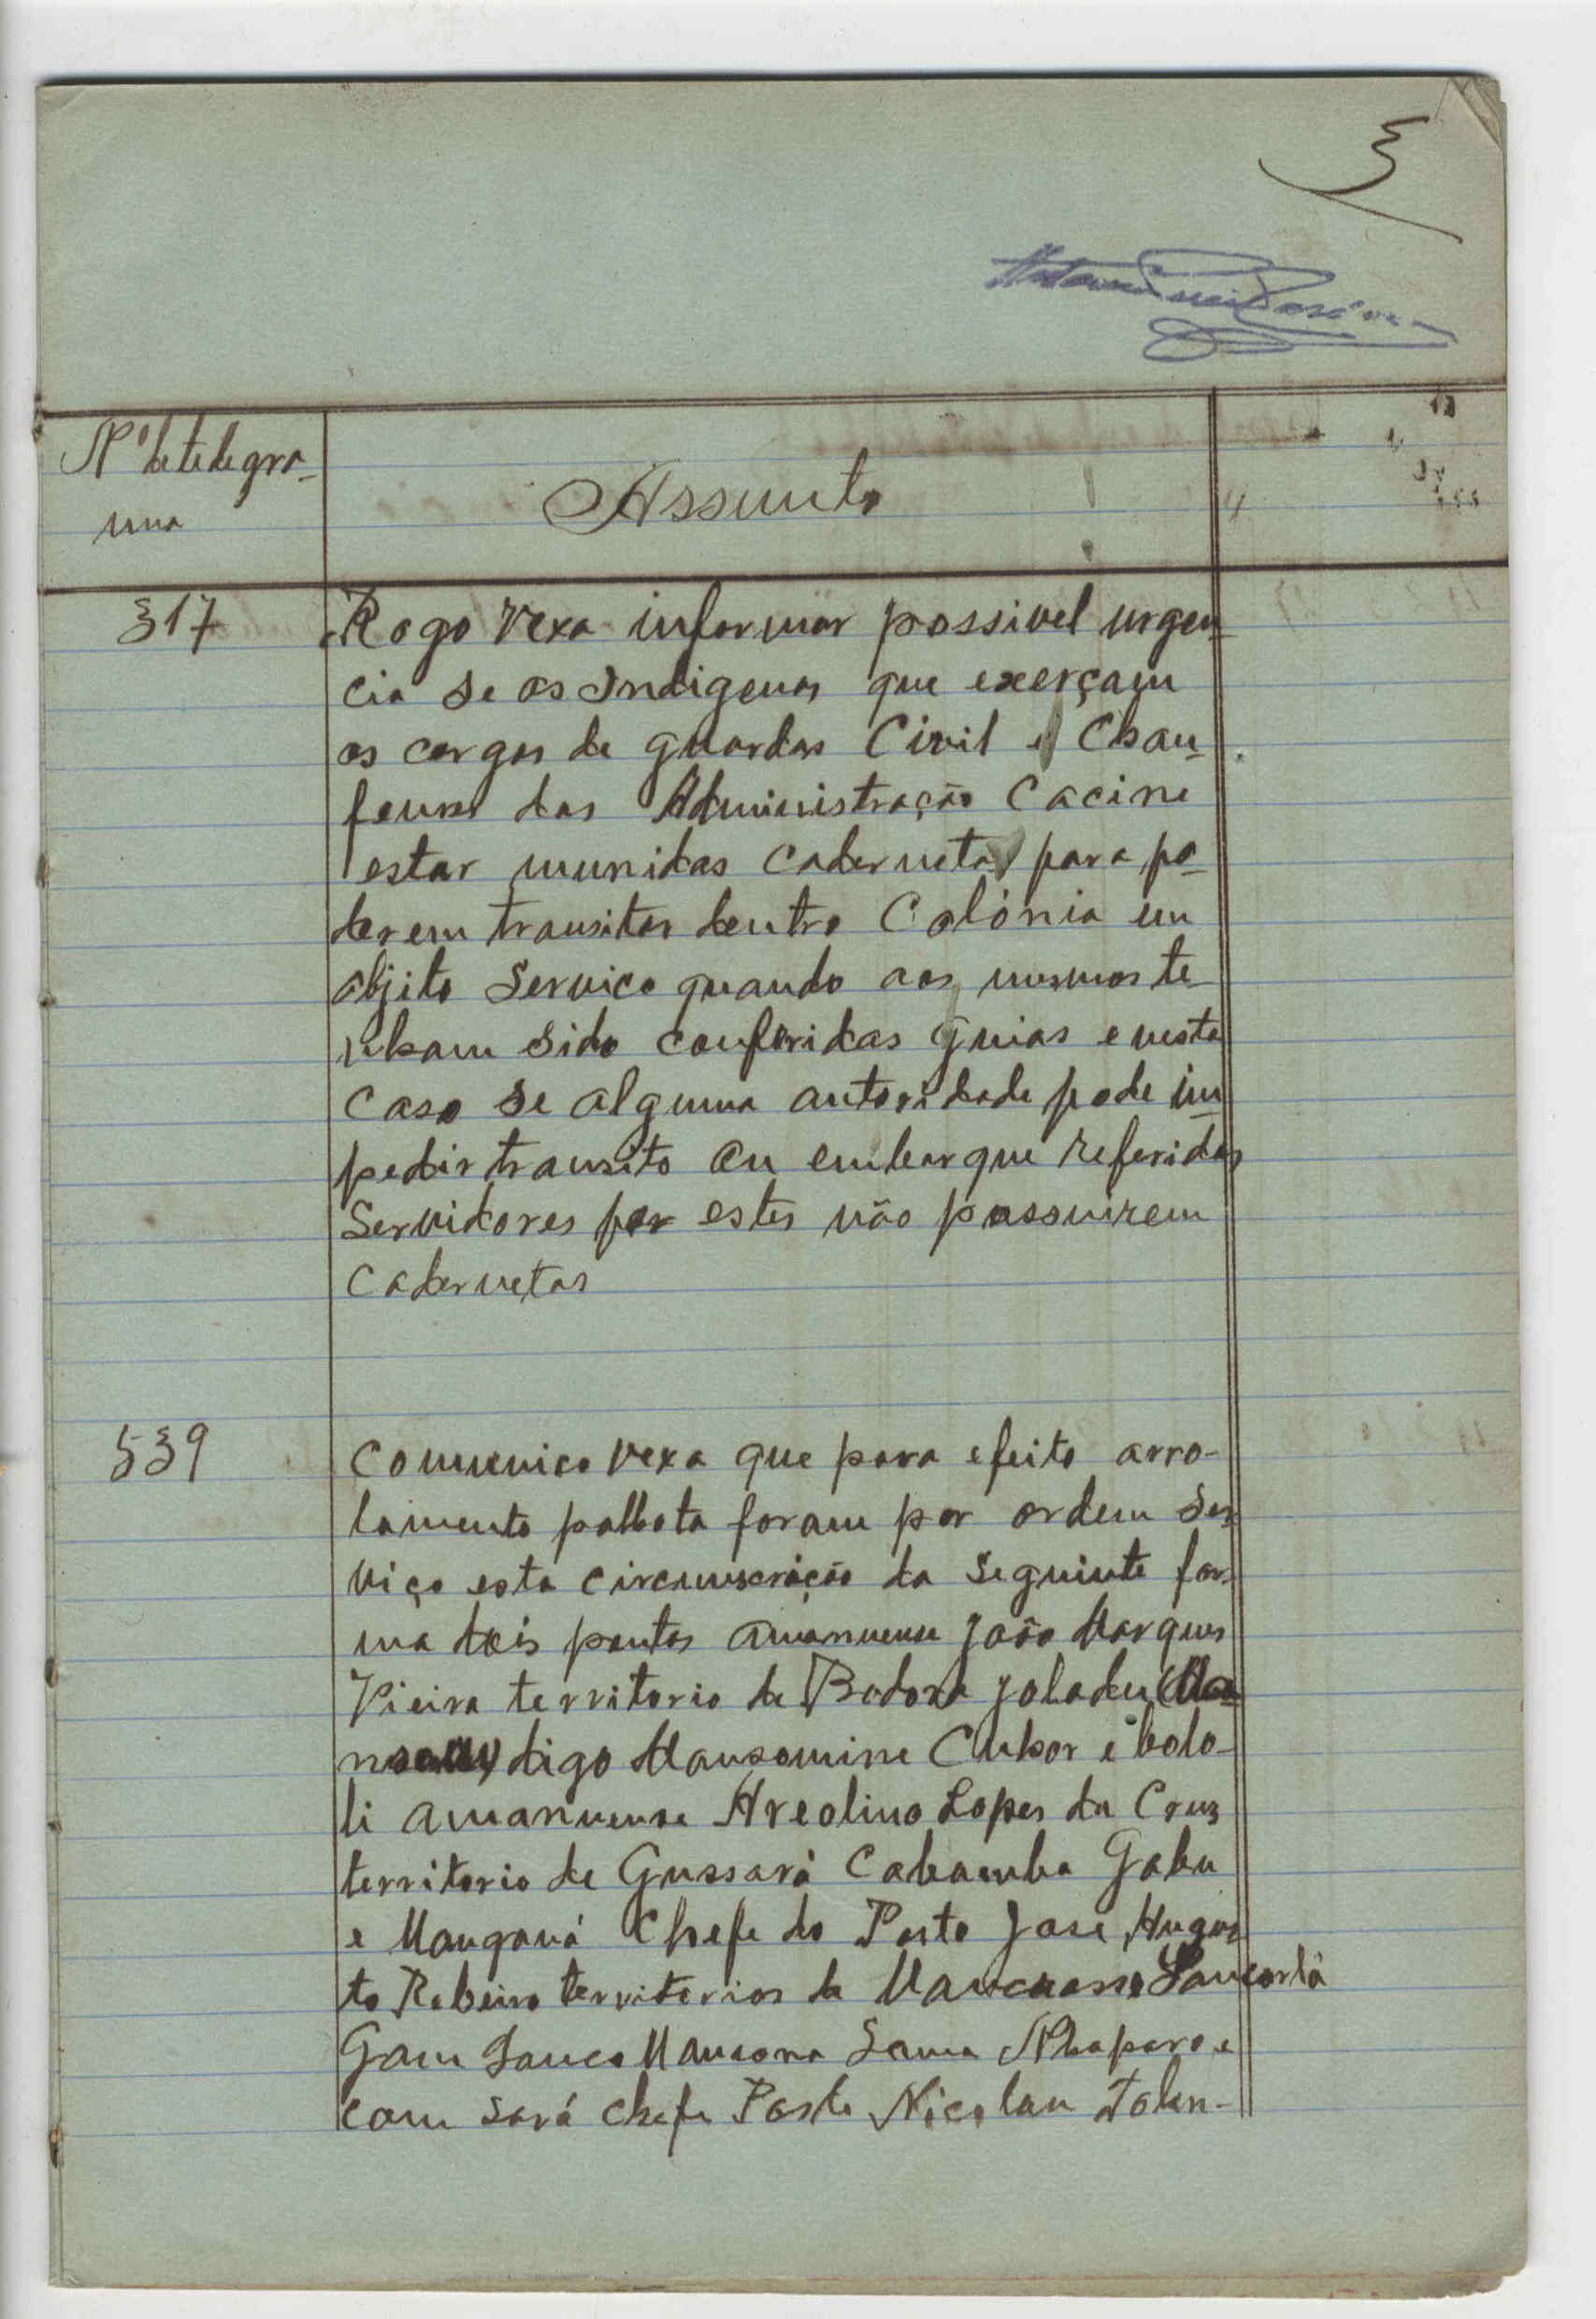 3
Nº de telegra-
ma
Assunto
317
Rogo Vexa informar possivel urgen-
cia se os Indigenas que exerçam
os cargos de guardas Civil e Chau-
feurs das Administração Cacine
estar munidas Cadernetas para po-
derem transitar dentro Colónia em
objito Serviço quando aos mesmos te-
nham sido conferidas guias e neste
caso se alguma autoridade pode im-
pedir transito ou embarque referidos
Servidores por estes não possuirem
Cadernetas
539
Comunico Vexa que para efeito arro-
lamento palhota foram por ordem Ser-
viço esta circunscrição da seguinte for-
ma dois pontos amanuense João Marques
Vieira territorio de Bodora Joladu (Ma-
digo Mansomine Cuhor e bolo-
li amanuense Areolino Lopes da Cruz
territorio de Gussará Cabamba Gabu
e Manganá Chefe do Posto Jose Augus-
to Rebeiro territorios de Mancrosse Sancorlá
Gam Sanco Mansona Sama Nhaparo e
Cam Sará Chefe Posto Nicolau Tolen-